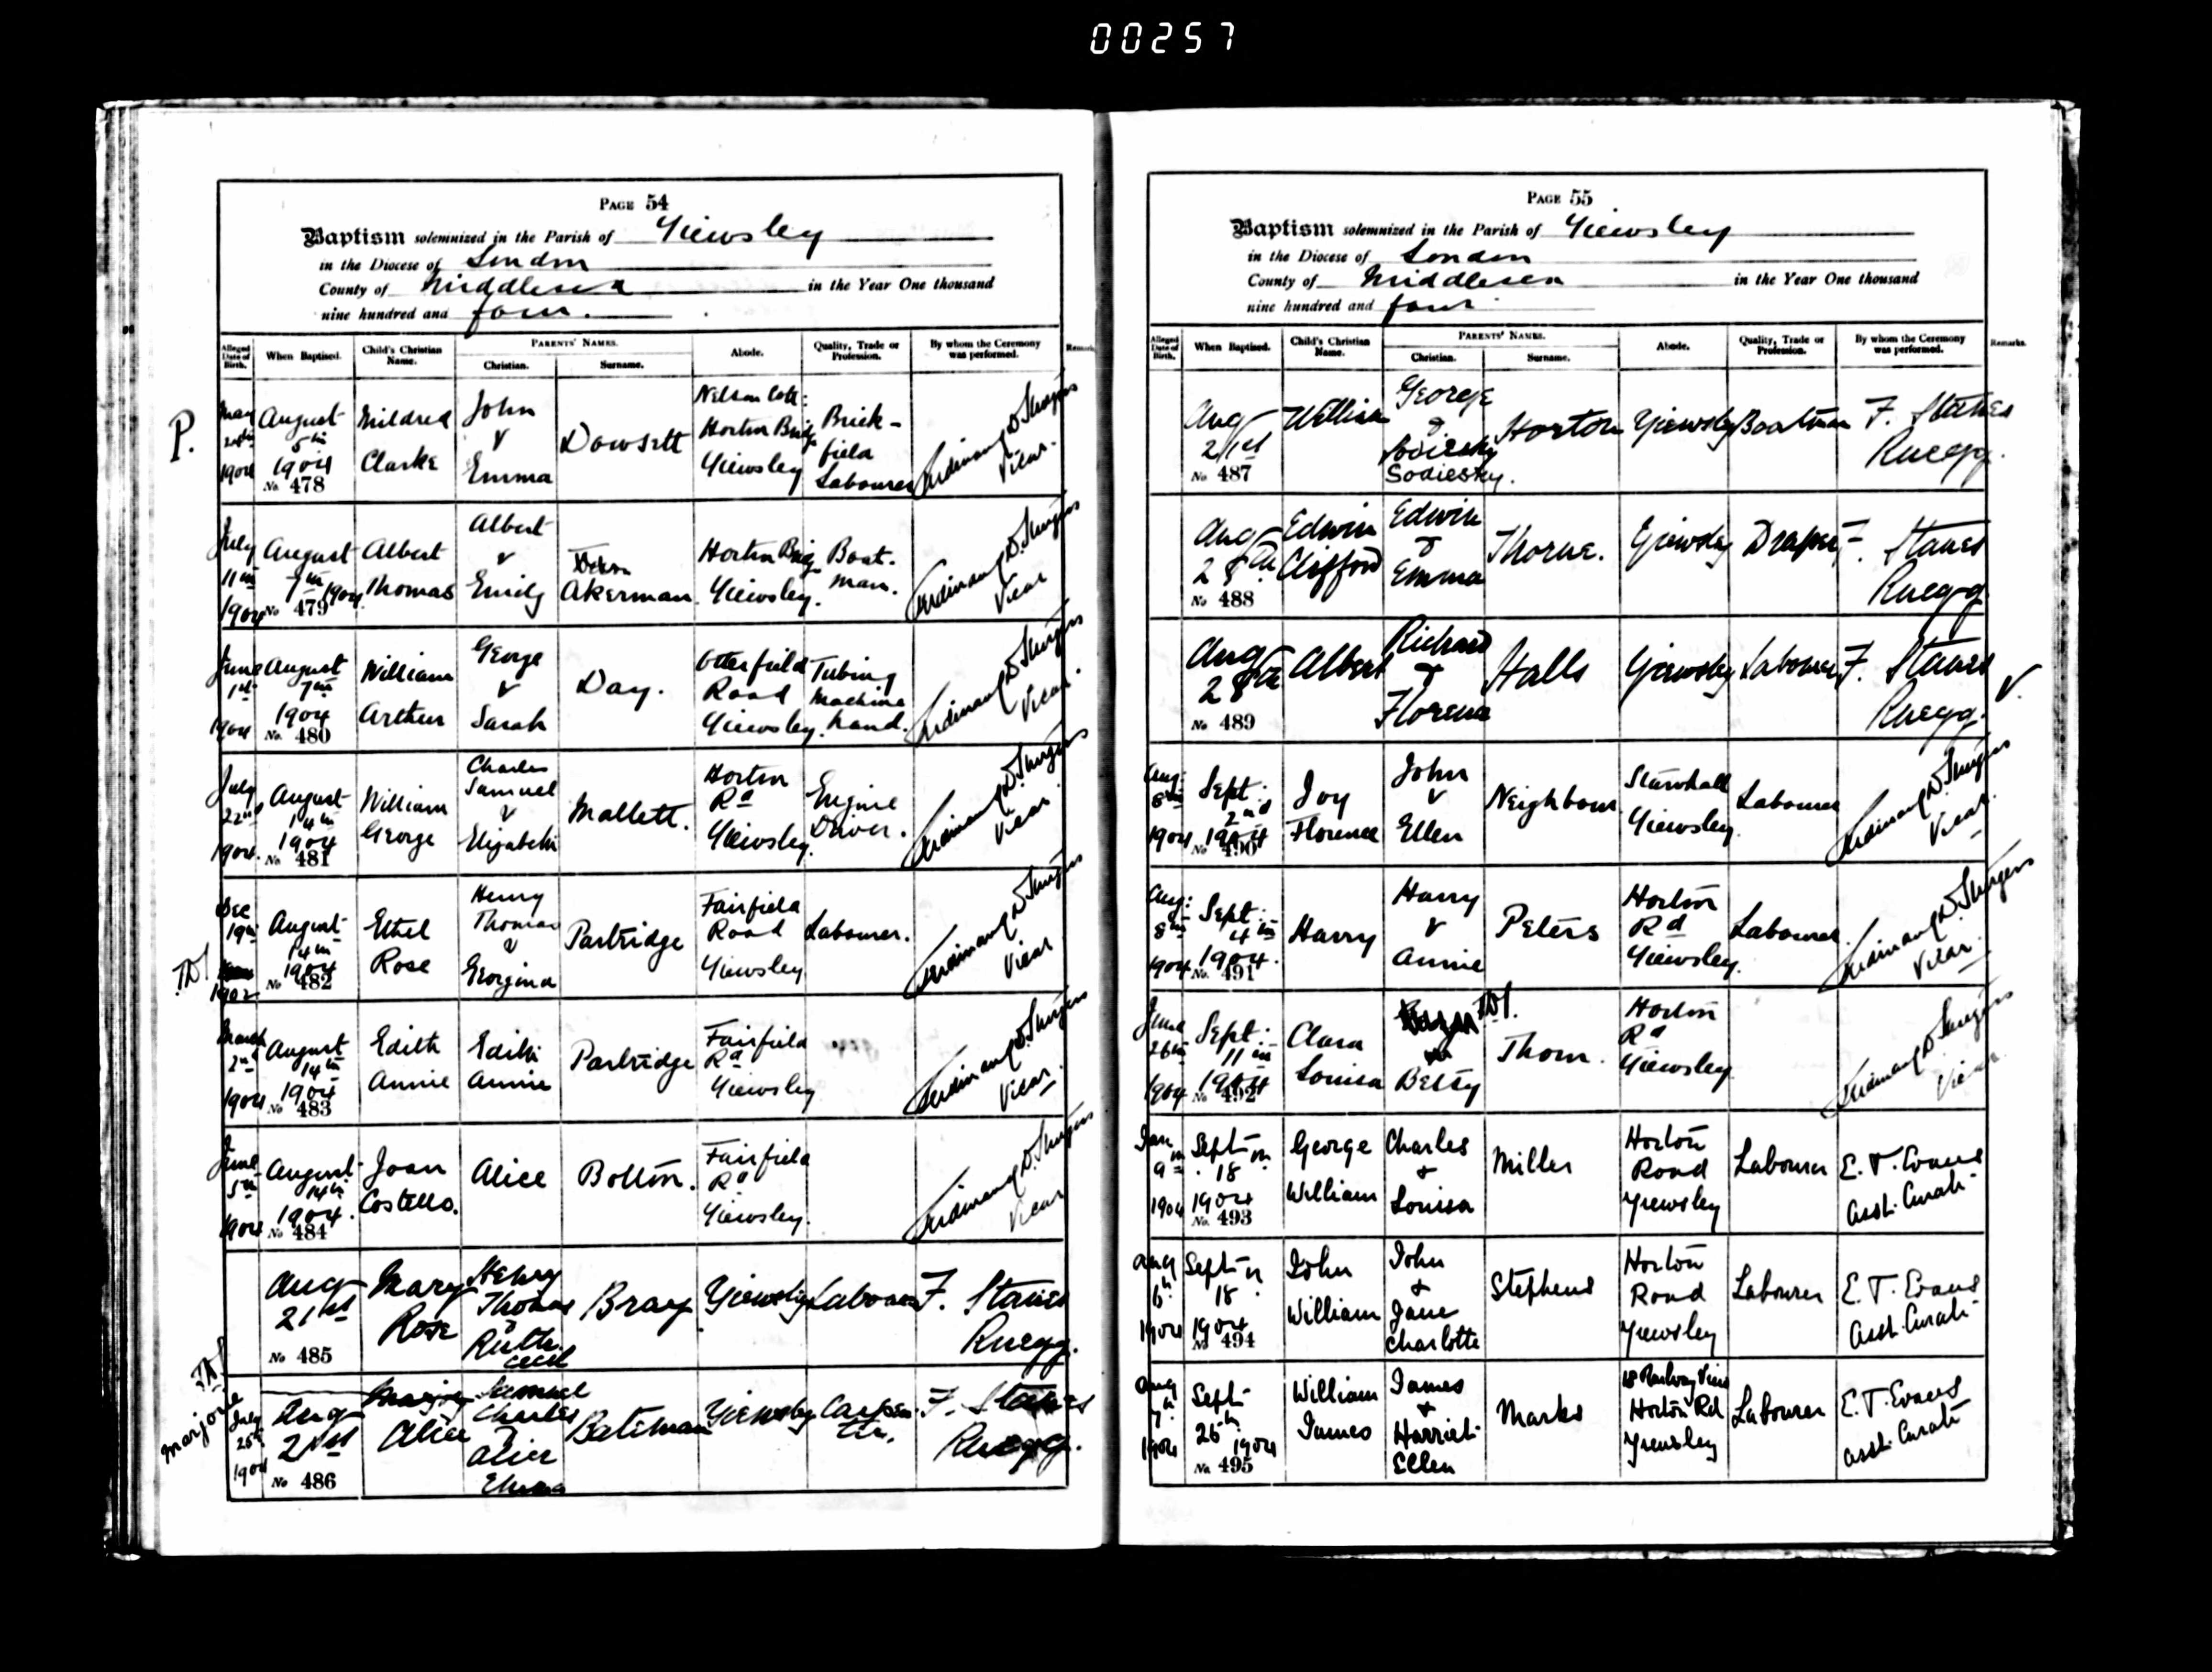 00257
PAGE 54
Baptism solemnized in the Parish of Yiewsley
in the Diocese of London
County of Middlesex in the Year One thousand
nine hundred and four.
Alleged Date of Birth. When Baptised. Child's Christian Name. PARENTS' NAMES. Christian. Surname. Abode. Quality, Trade or Profession. By whom the Ceremony was performed. Remarks.
P.
May 1904 August 5th 1904 No 478 Mildred Clarke John & Emma Dowsett Nelson Cott: Horton Bridge Yiewsley Brick-field Labourer Vicar.
July 11th 1904 August 7th 1904 No 479 Albert Thomas Albert & Emily Akerman. Horton Bridge Yiewsley. Boat-man. Vicar
June 1st 1904 August 7th 1904 No 480 William Arthur George & Sarah Day. Otterfield Road Yiewsley. Tubing Machine hand. Vicar.
July 22nd 1904. August 14th 1904 No 481 William George Charles Samuel & Elizabeth Mallett. Horton Rd Yiewsley. Engine Driver. Vicar.
Dec 19th 1902 August 14th 1904 No 482 Ethel Rose Henry Thomas & Georgina Partridge Fairfield Road Yiewsley Labourer. Vicar
March 2nd 1904 August 14th 1904 No 483 Edith Annie Edith Annie Partridge Fairfield Rd Yiewsley Vicar.
June 5th 1904 August 14th 1904. No 484 Joan Costello. Alice Bolton. Fairfield Rd Yiewsley. Vicar
Aug 21st No 485 Mary Rose Henry Thomas & Ruth Cecil Bray Yiewsley Labourer F. Staines Ruegg.
Marjorie
July 25th 1904 Aug 21st No 486 Alice Samuel Charles & Alice Emma Bateman Yiewsley Carpenter. F. Staines Ruegg.
PAGE 55
Baptism solemnized in the Parish of Yiewsley
in the Diocese of London
County of Middlesex in the Year One thousand
nine hundred and four
Alleged Date of Birth. When Baptised. Child's Christian Name. PARENTS' NAMES. Christian. Surname. Abode. Quality, Trade or Profession. By whom the Ceremony was performed. Remarks.
Aug 21st No 487 William George & Sodiesky. Horton Yiewsley Boatman F. Staines Ruegg.
Aug 28th No 488 Edwin Clifford Edwin & Emma Thorne. Yiewsley Draper F. Staines Ruegg
Aug 28th No 489 Albert Richard & Florence Halls Yiewsley Labourer F. Staines Ruegg.
Aug: 8th 1904 Sept: 2nd 1904 No 490 Joy Florence John & Ellen Neighbour Yiewsley. Labourer Vicar
Aug: 8th 1904. Sept: 4th 1904. No 491 Harry Harry & Annie Peters Horton Rd Yiewsley. Labourer. Vicar.
June 26th 1904 Sept: 11th 1904 No 492 Clara Louisa Betty Thorn. Horton Rd Yiewsley Vicar
Jan 9th 1904 Sept 18 1904 No 493 George William Charles & Louisa Miller Horton Road Yiewsley Labourer E. T. Evans Asst. Curate
Aug 6th 1904 Sept 18 1904 No 494 John William John & Jane Charlotte Stephens Horton Road Yiewsley Labourer E. T. Evans Asst. Curate
Aug 7th 1904 Sept 26th 1904 No 495 William James James & Harriet Ellen Marks 18 Railway View Horton Rd Yiewsley Labourer E. T. Evans Asst. Curate